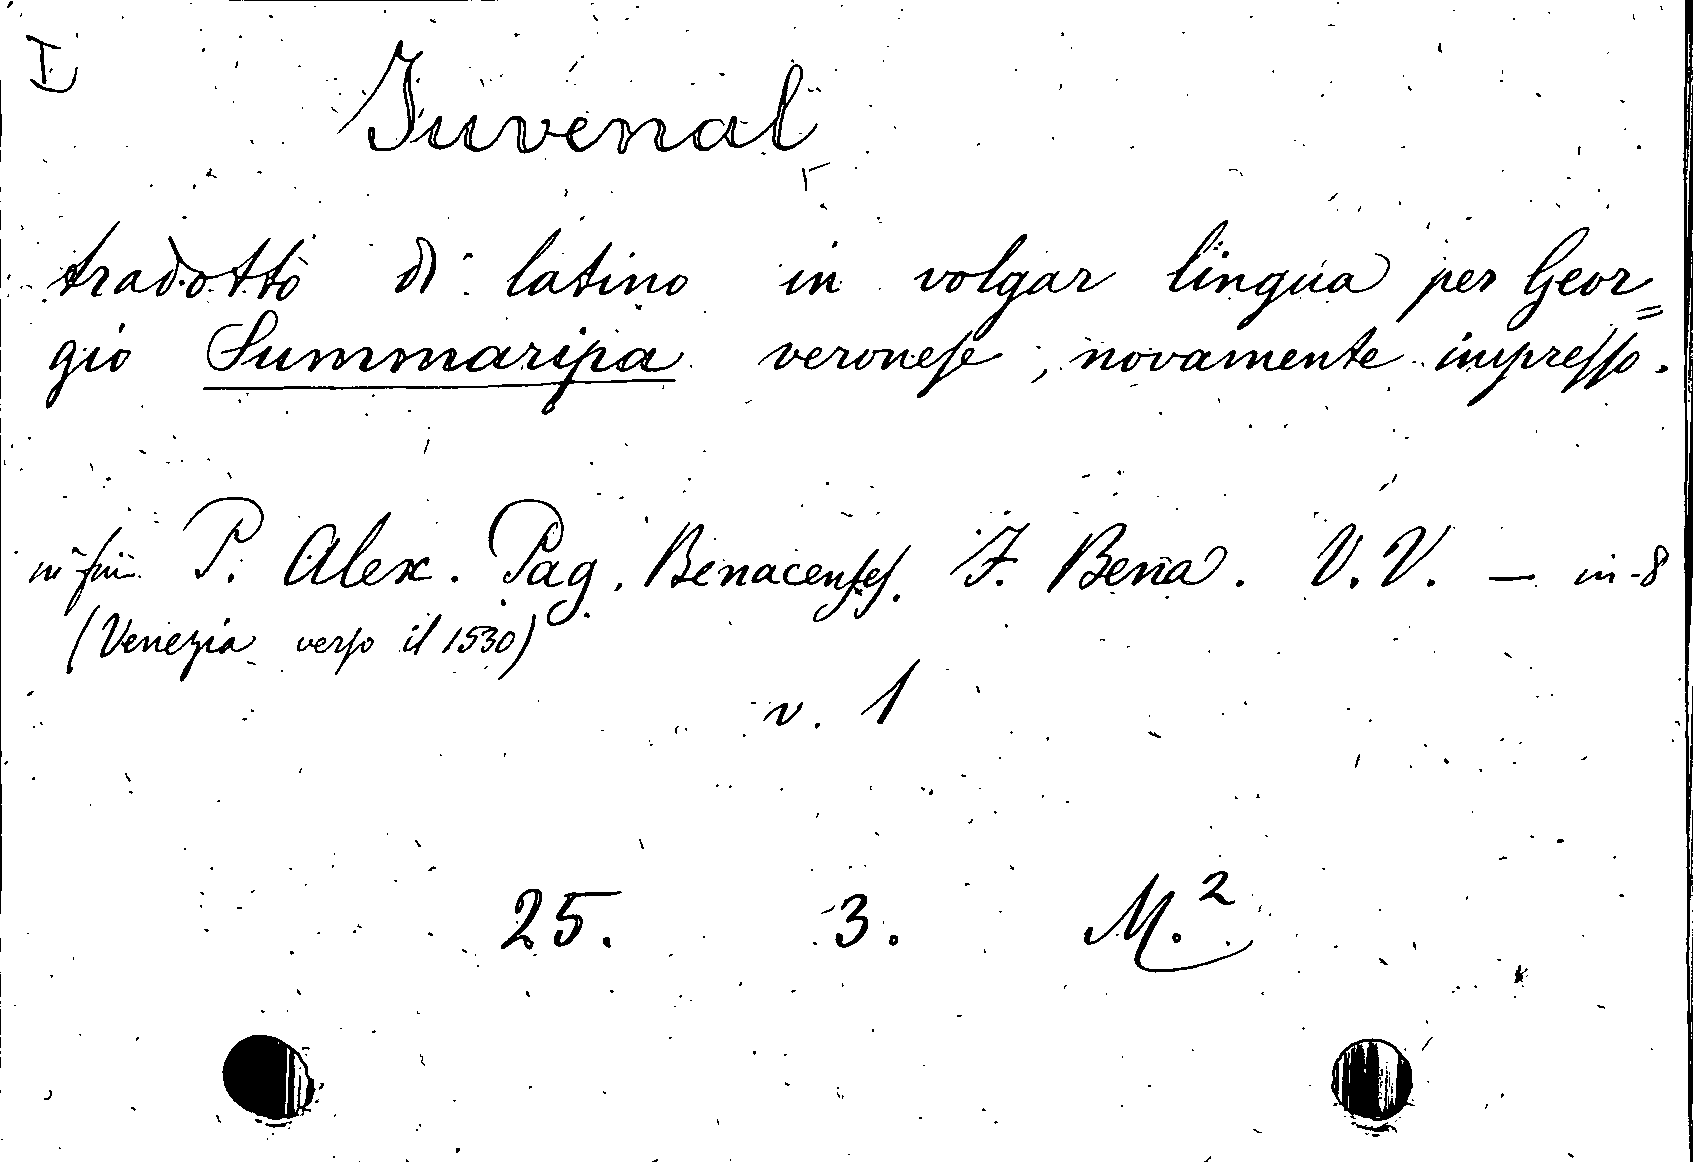 I
Juvenal
tradotto di latino in volgar lingua per Geor=
gio Summaripa veronese, novamente impresso.
in fin P. Alex. Pag. Benacenses. F. Bena. V. V. — in-8
(Venezia verso il 1530)
v. 1
25. 3. M.²